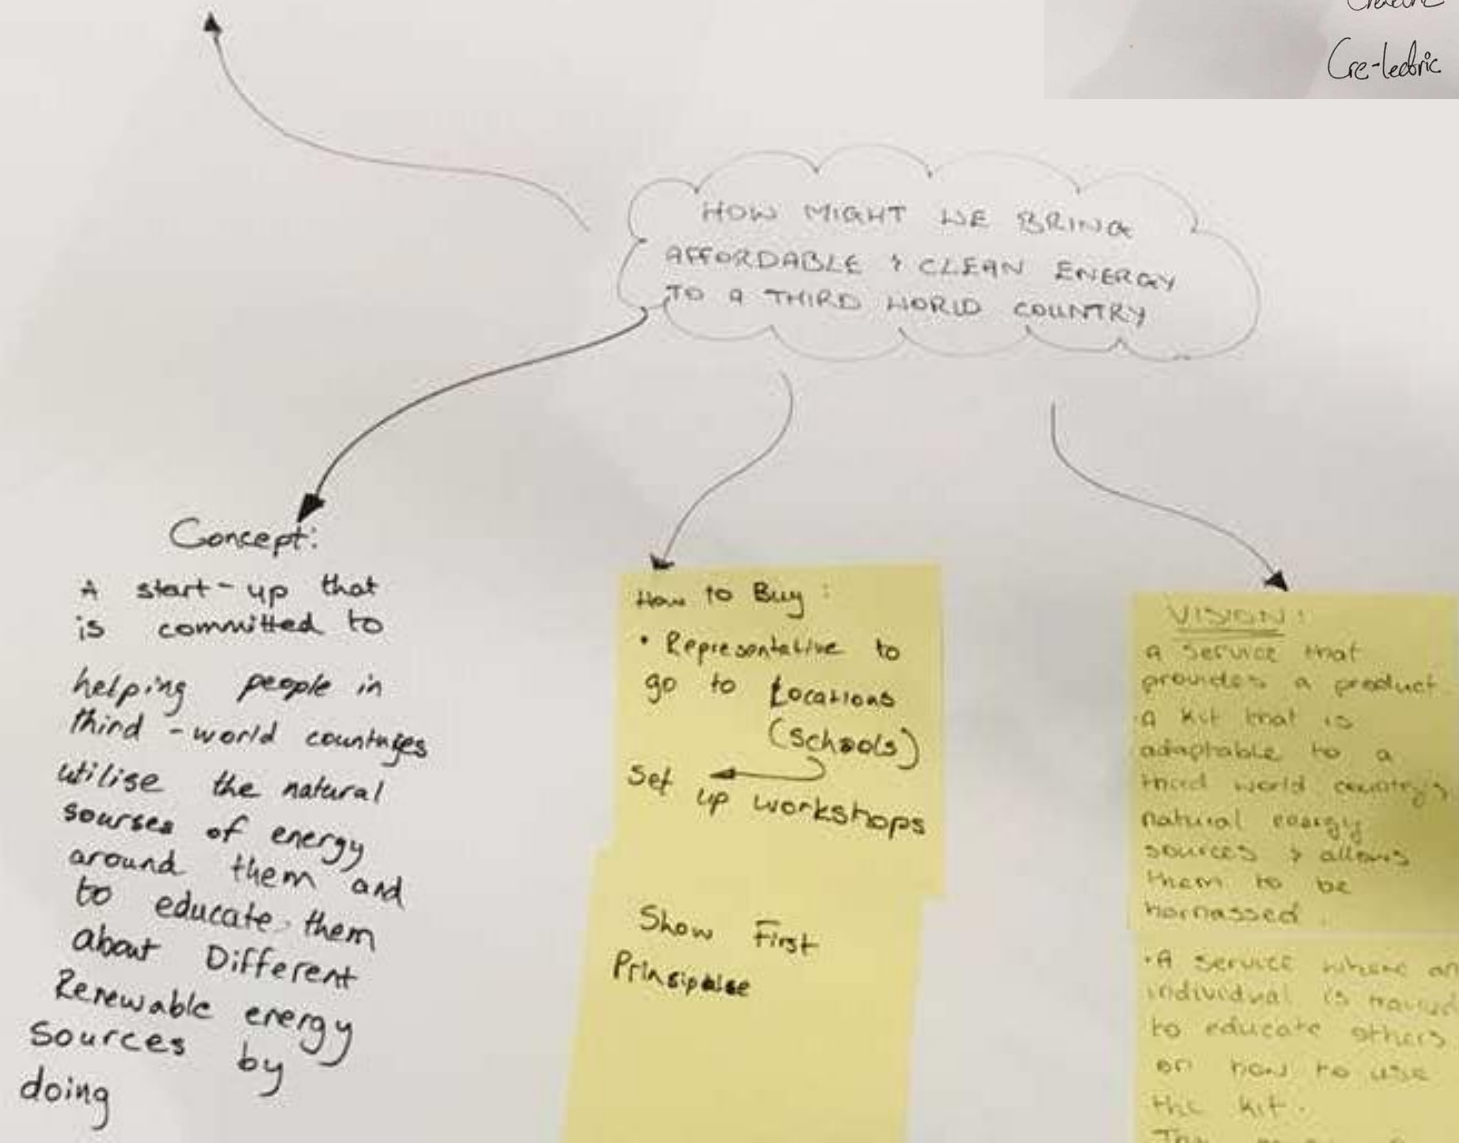 Cre-lectric
HOW MIGHT WE BRING
AFFORDABLE & CLEAN ENERGY
TO A THIRD WORLD COUNTRY
Concept:
A start-up that
is committed to
helping people in
third-world countries
utilise the natural
sourses of energy
around them and
to educate them
about Different
Renewable energy
sources by
doing
How to Buy :
• Representative to
go to Locations
(schools)
Set up workshops
Show First
Prinsipalse
VISION :
a service that
provides a product.
a kit that is
adaptable to a
third world country's
natural energy
sources & allows
them to be
harnassed.
• A service where an
individual is
to educate others
on how to use
the kit.